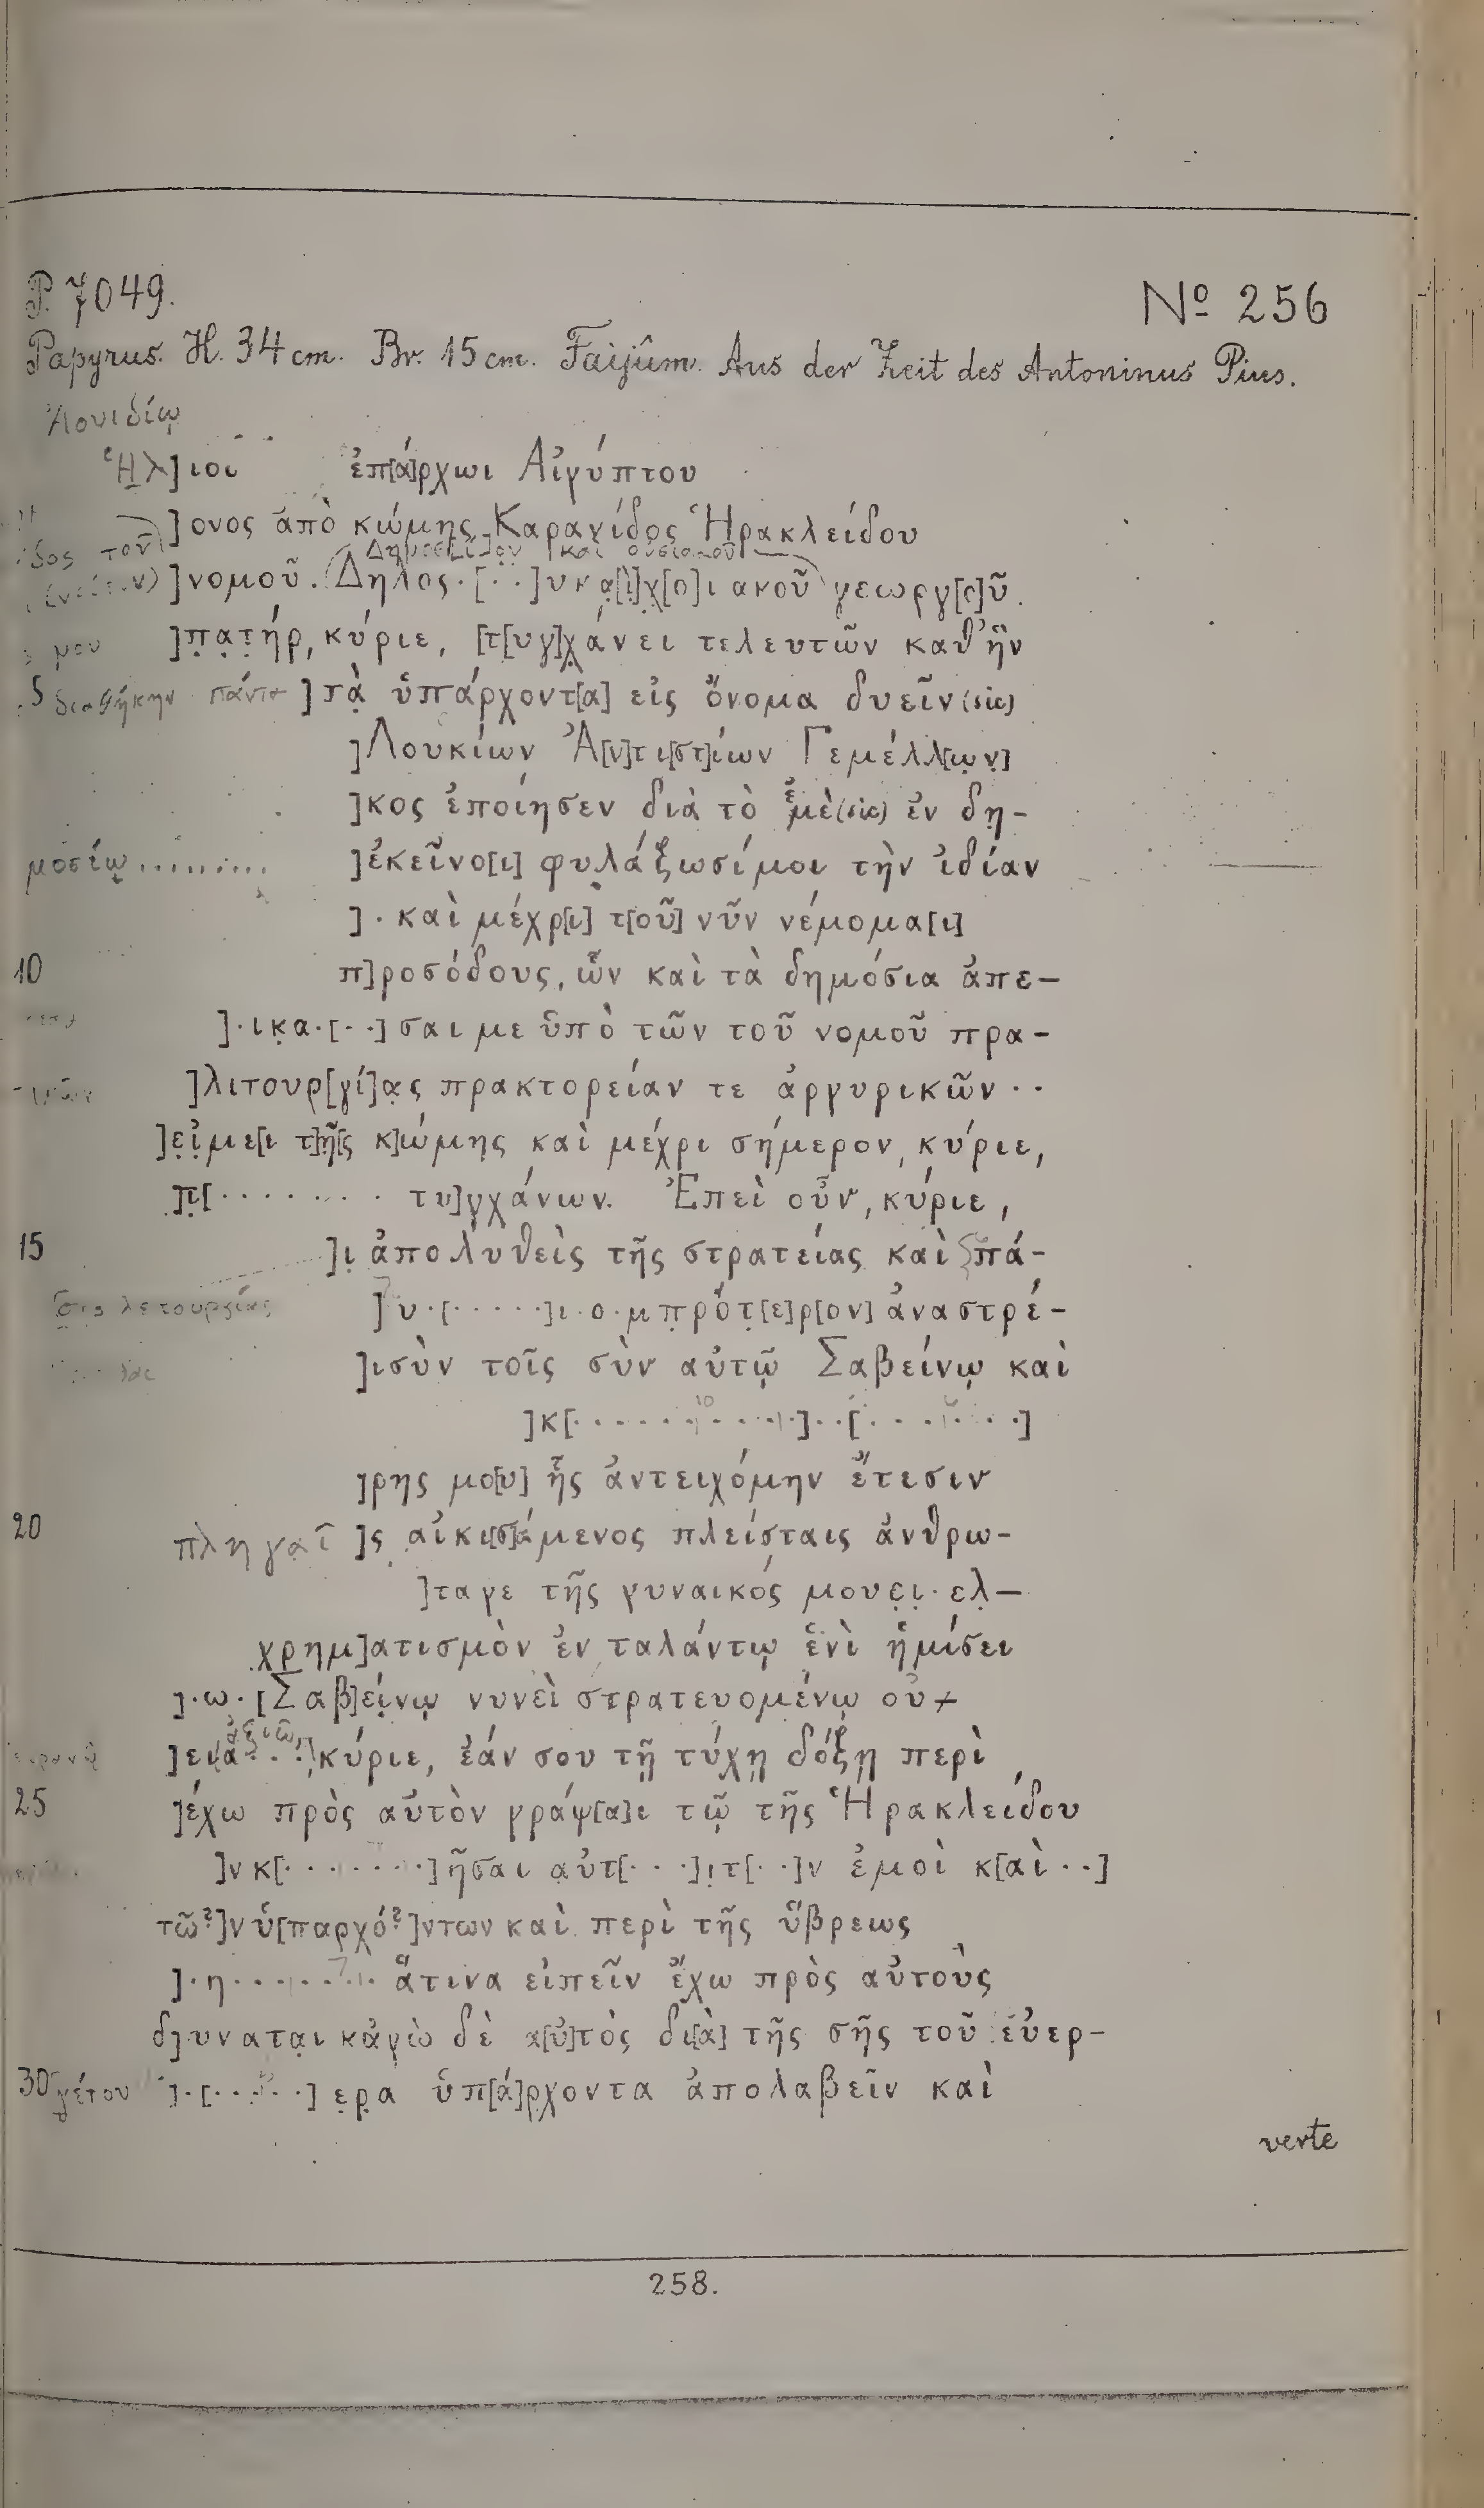 P. 7049.
Nº 256
Papyrus. H. 34 cm. Br. 15 cm. Faijûm. Aus der Zeit des Antoninus Pius.
Ἀουιδίῳ
Ἡλ]ιοι ἐπ[ά]ρχωι Αἰγύπτου
]ονος ἀπὸ κώμης Καρανίδος Ἡρακλείδου
καὶ οὐσιακοῦ
]νομοῦ. Δηλος·[··]υκα[ὶ]χ[ο]ιακοῦ γεωργ[ο]ῦ.
μου ]πατήρ, κύριε, [τ[υγ]χάνει τελευτῶν καθ' ἣν
5 διαθήκην πάντα ]τὰ ὑπάρχοντ[α] εἰς ὄνομα δυεῖν (sic)
]Λουκίων Ἀ[ν]τι[στ]ίων Γεμέλλ[ων]
]κος ἐποίησεν διὰ τὸ ἐμὲ (sic) ἐν δη-
μοσίῳ......... ]ἐκεῖνο[ι] φυλάξωσίμοι τὴν ἰδίαν
]· καὶ μέχρ[ι] τ[οῦ] νῦν νέμομα[ι]
10 π]ροσόδους, ὧν καὶ τὰ δημόσια ἀπε-
]·ικα·[··]σαι με ὑπὸ τῶν τοῦ νομοῦ πρα-
]λιτουρ[γί]ας πρακτορείαν τε ἀργυρικῶν··
]εἰμε[ι τ]ῆ[ς κ]ώμης καὶ μέχρι σήμερον, κύριε,
π[········ τυ]γχάνων. Ἐπεὶ οὖν, κύριε,
15 ]ι ἀπολυθεὶς τῆς στρατείας καὶ πά-
σης λειτουργίας ]υ·[·····]ι·ο·μπρότ[ε]ρ[ον] ἀναστρέ-
]ισὺν τοῖς σὺν αὐτῷ Σαβείνῳ καὶ
]κ[··········]··[········]
]ρης μο[υ] ἧς ἀντειχόμην ἔτεσιν
20 πληγαῖ]ς αἰκι[σ]άμενος πλείσταις ἀνθρω-
]ταγε τῆς γυναικός μουει·ελ-
χρημ]ατισμὸν ἐν ταλάντῳ ἑνὶ ἡμίσει
]·ω·[Σαβ]είνῳ νυνεὶ στρατευομένῳ οὐ
ἀξιῶ
κύριε, ἐάν σου τῇ τύχῃ δόξῃ περὶ
25 ]έχω πρὸς αὐτὸν γράψ[α]ι τῷ τῆς Ἡρακλείδου
]νκ[·······]ῆσαι αὐτ[···]ιτ[··]ν ἐμοὶ κ[αὶ··]
τῶ?]ν ὑ[παρχό?]ντων καὶ περὶ τῆς ὕβρεως
]·η······· ἅτινα εἰπεῖν ἔχω πρὸς αὐτοὺς
δ]υναται κἀγὼ δὲ α[ὐ]τὸς δι[ὰ] τῆς σῆς τοῦ εὐερ-
30 γέτου ]·[·····]ερα ὑπ[ά]ρχοντα ἀπολαβεῖν καὶ
verte
258.